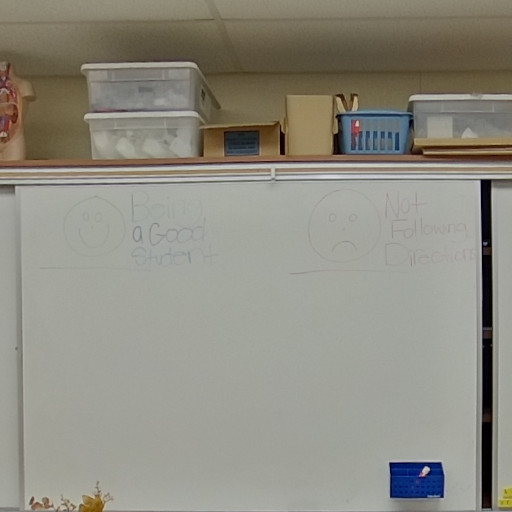 Being
a Good
Student
Not
Following
Directions